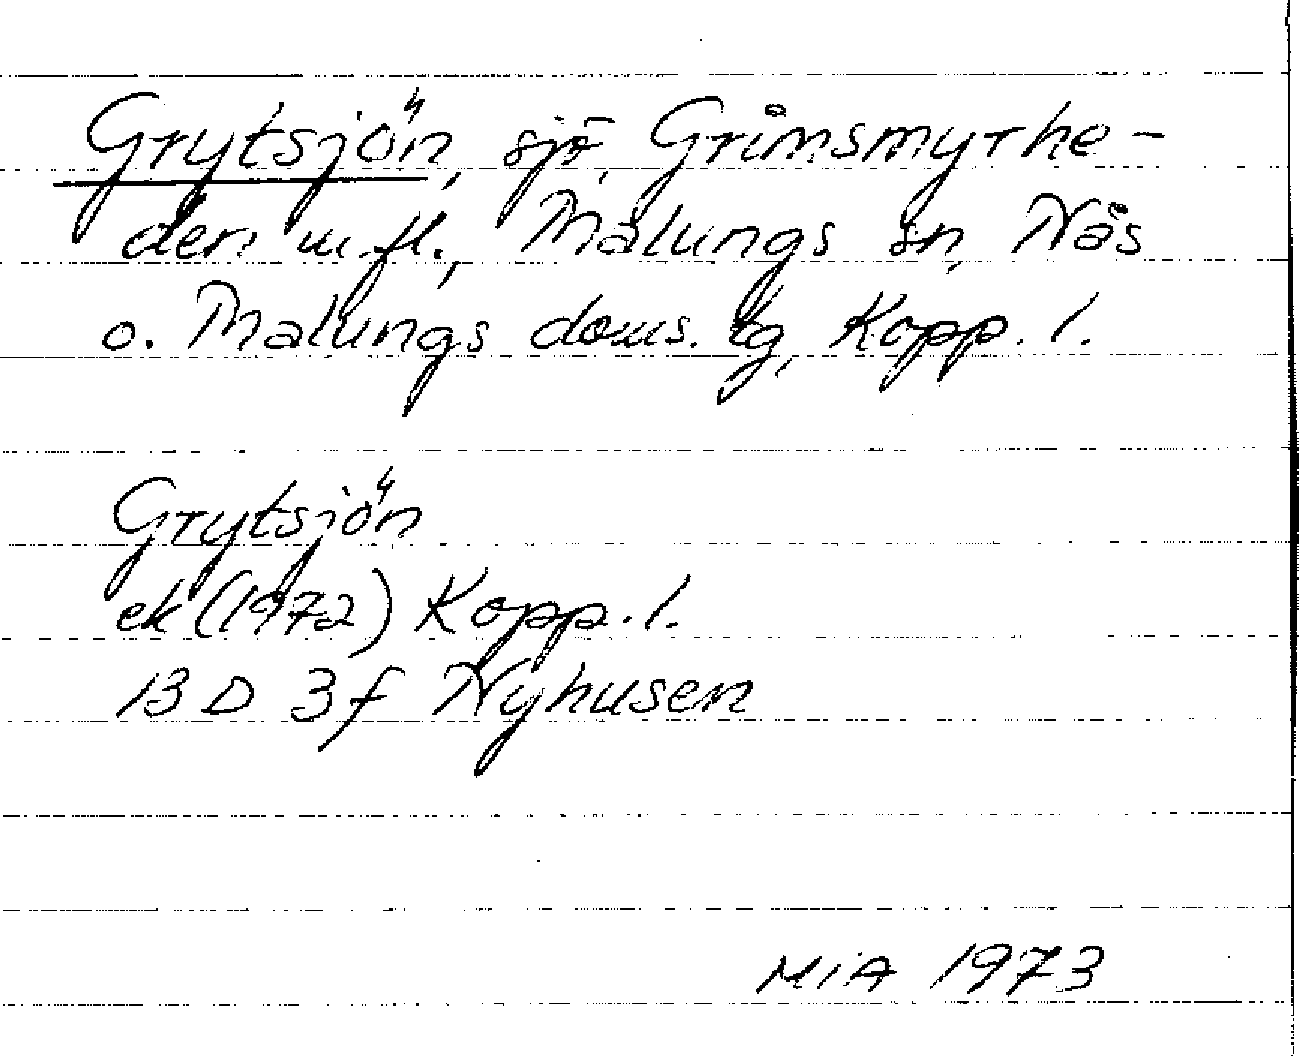 Grytsjön, sjö, Grimsmyrhe-
den m.fl., Malungs sn, Nås
o. Malungs doms. tg, Kopp. l.
Grytsjön
ek (1972) Kopp. l.
13 D 3f Nyhusen
MiA 1973